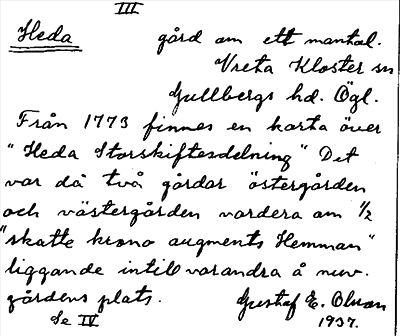 III
Heda gård om ett mantal.
Vreta Kloster sn
Gullbergs hd. Ögl.
Från 1773 finnes en karta över
"Heda Storskiftesdelning" Det
var då två gårdar östergården
och västergården vardera om 1/2
"skatte krono augments Hemman"
liggande intill varandra å nuv.
gårdens plats. Gustaf E. Olson
Se IV 1937.